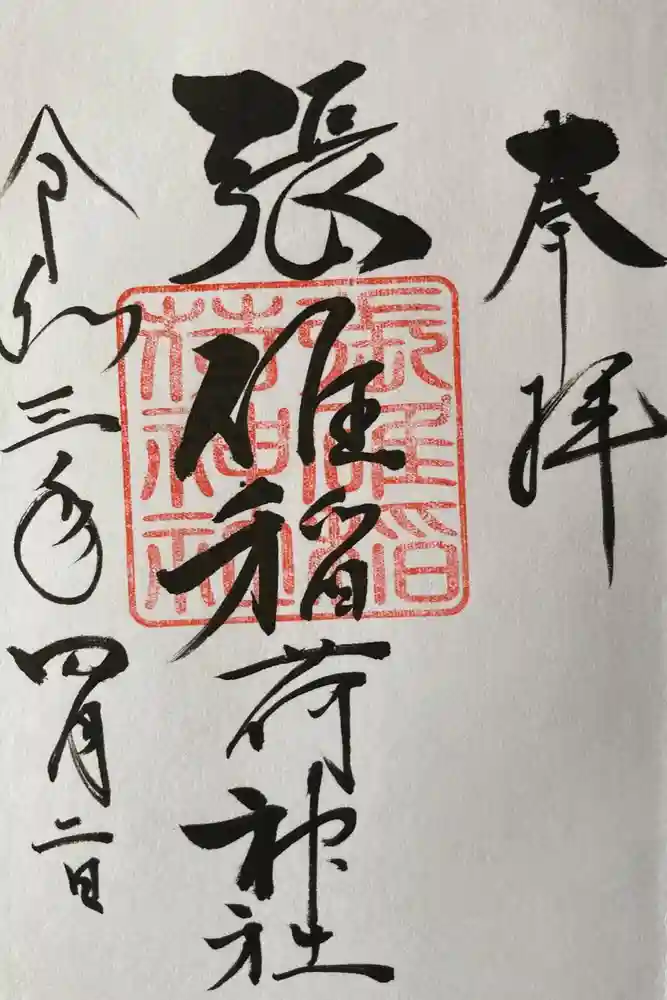 奉拝
張碓稲荷神社
張碓稲
荷神社
令和三年四月二日